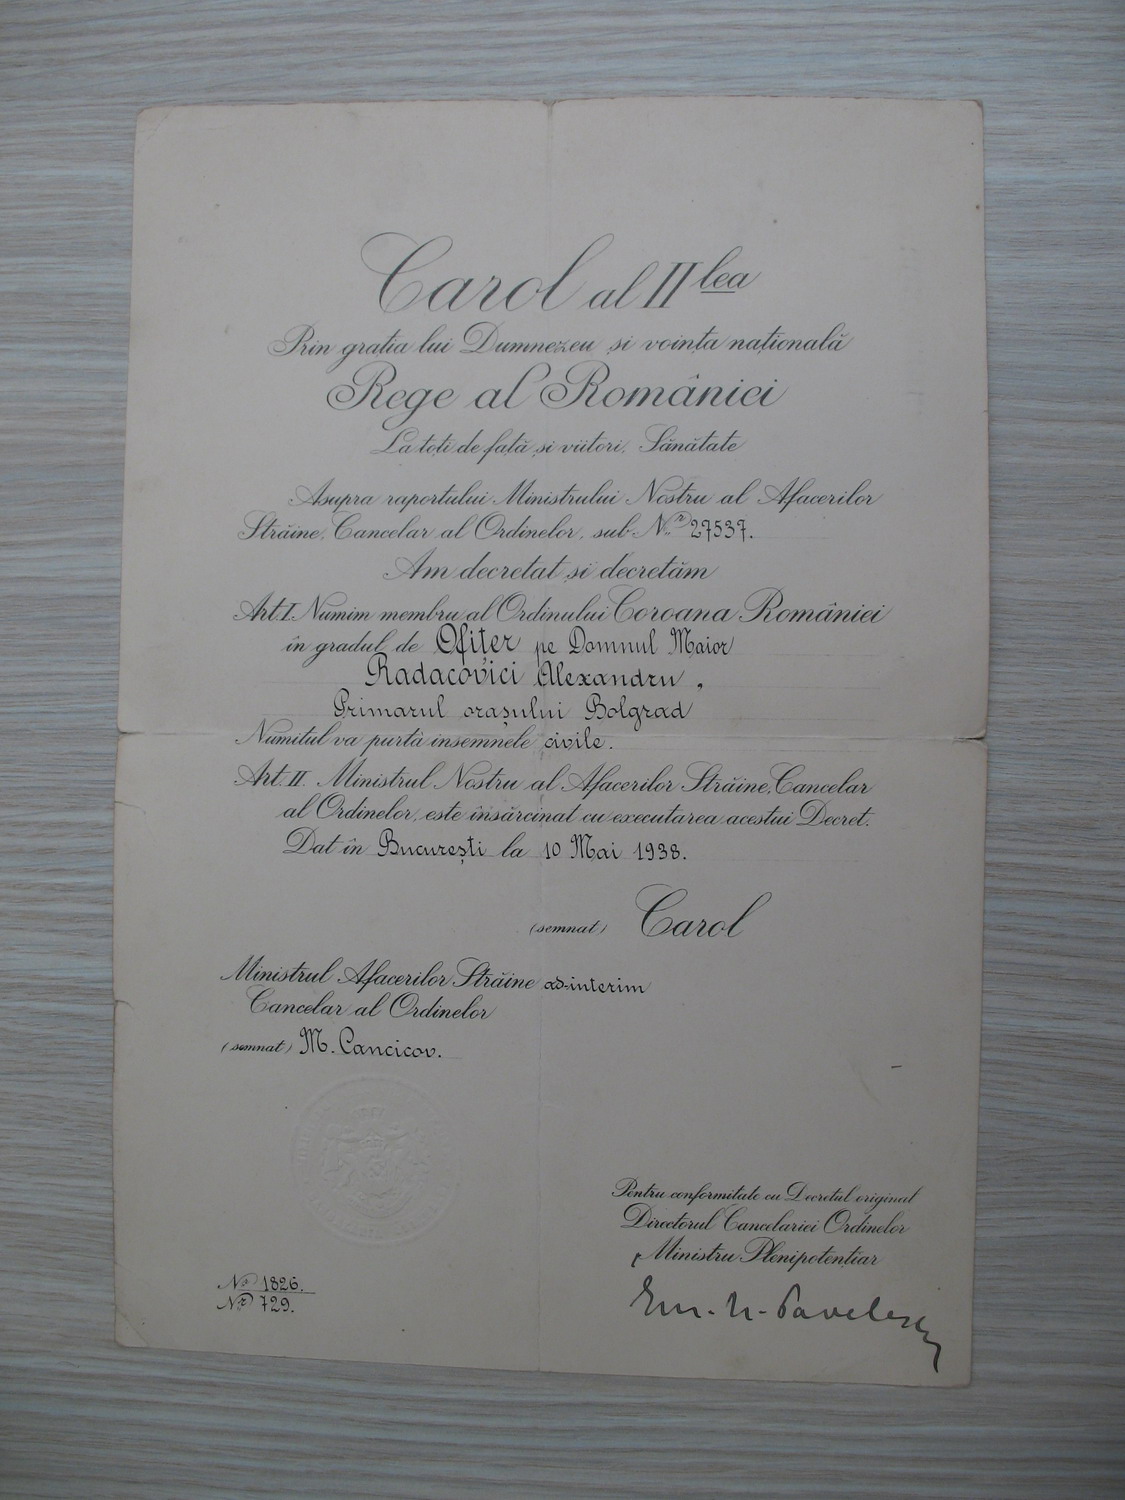 Carol al II lea
Prin gratia lui Dumnezeu și voința națională
Rege al României
La toți de față și viitori, Sănătate
Asupra raportului Ministrului Nostru al Afacerilor
Străine, Cancelar al Ordinelor, sub N.r 27537.
Am decretat și decretăm
Art. I. Numim membru al Ordinului Coroana României
în gradul de Ofițer pe Domnul Maior
Radacovici Alexandru,
Primarul orașului Bolgrad
Numitul va purtà insemnele civile.
Art. II. Ministrul Nostru al Afacerilor Străine, Cancelar
al Ordinelor, este însărcinat cu executarea acestui Decret.
Dat în București la 10 Mai 1938.
(semnat) Carol
Ministrul Afacerilor Străine ad-interim
Cancelar al Ordinelor
(semnat) M. Cancicov.
Pentru conformitate cu Decretul original
Directorul Cancelariei Ordinelor
Ministru Plenipotențiar
Em. N. Pavelescu
No 1826.
Nr 729.